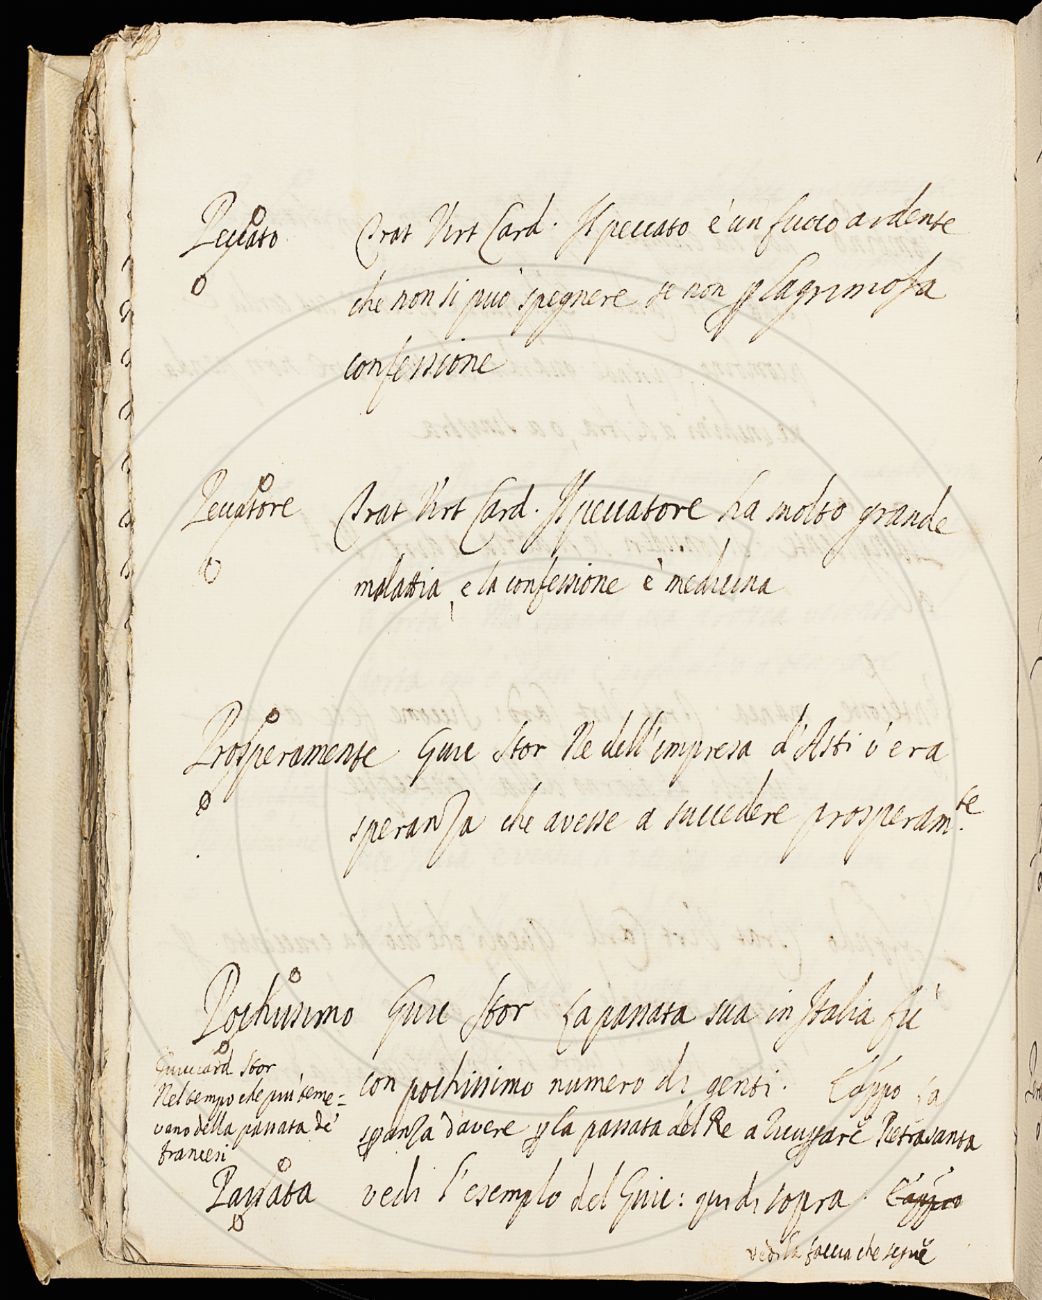 Peccato Trat Virt Card. Il peccato è un fuoco ardente
che non si può spegnere se non p lagrimosa
confessione
Peccatore Trat Virt Card. Il peccatore ha molto grande
malattia, e la confessione è medicina
Prosperamente Guic Stor Ne dell'impresa d'Asti v'era
speranza che avesse a succedere prosperam.te
Pochissimo Guic Stor La passata sua in Italia fù
con pochissimo numero di genti. Cappo la
spanza d'avere p la passata del Re a Pietrasanta
Guicciard Stor
Nel tempo che più teme=
vano della passata de'
franzesi
Passata vedi l'esemplo del Guic: qui di sopra
vedi la faccia che segue